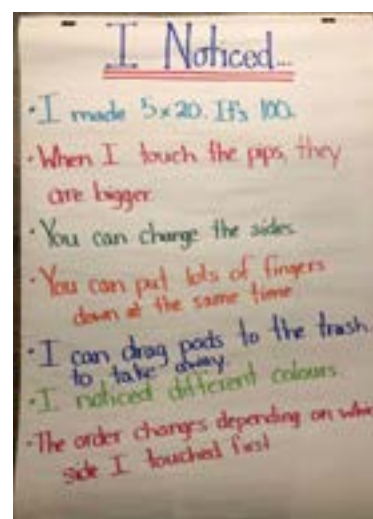 I Noticed...
• I made 5x20. It's 100.
• When I touch the pips, they
are bigger
• You can change the sides.
• You can put lots of fingers
down at the same time
• I can drag pods to the trash
to take away.
• I noticed different colours.
• The order changes depending on
side I touched first